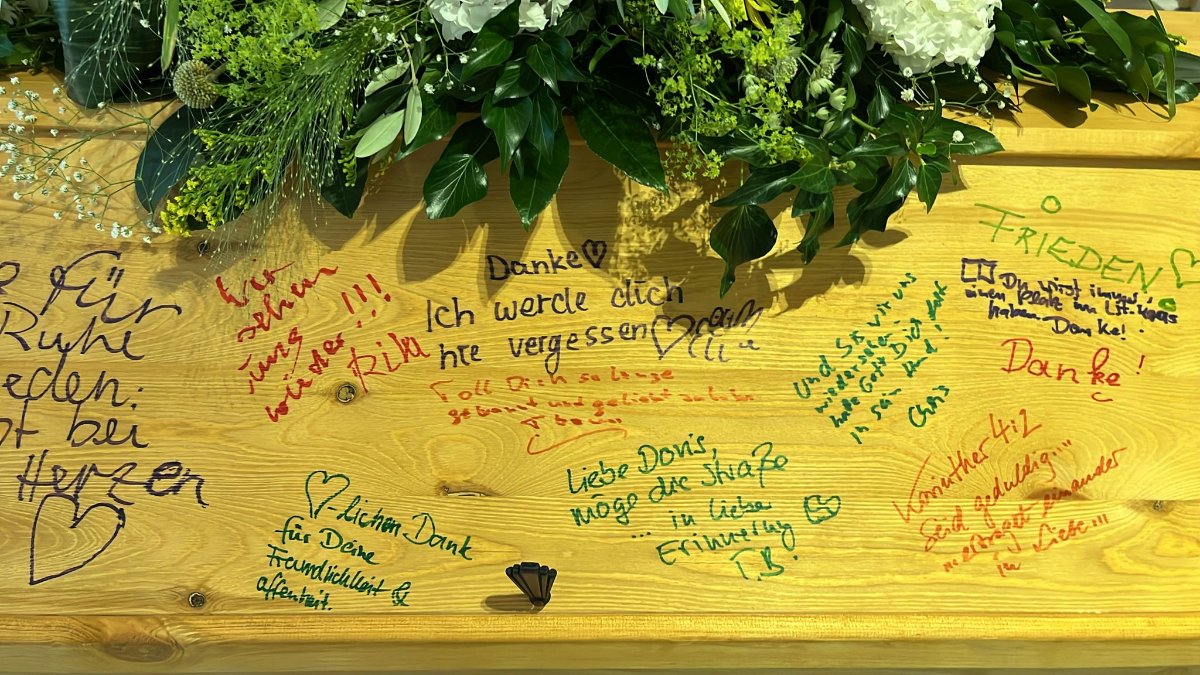 Für
Ruhe
eden.
bei
Herzen
Wir
sehen
uns
wieder!!!
Danke
Ich werde dich
nie vergessen
Toll Dich so lange
gekannt und geliebt zu haben
Und bis wir uns
wiedersehen
halte Gott Dich fest
in seiner Hand!
Chris
FRIEDEN
Du wirst immer
einen Platz im Lit.-Kreis
haben. Danke!
Danke!
Korinther 4:2
Seid geduldig....
...ertraget einander
in Liebe...
-lichen Dank
für Deine
Freundlichkeit &
Offenheit.
Liebe Doris,
möge die Straße
... in lieber
Erinnerung
T.B!